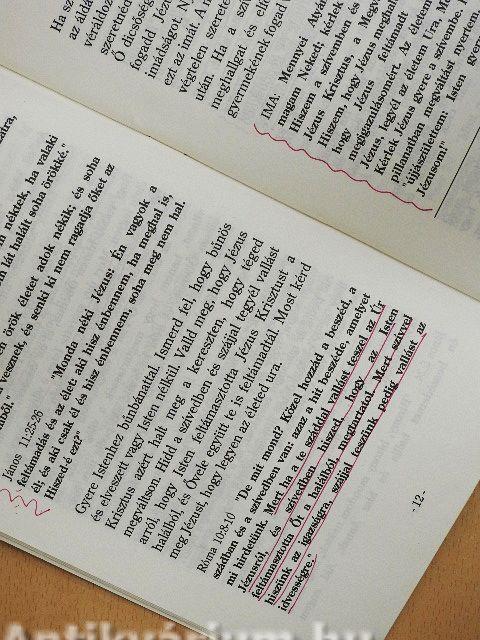 Ha sz
az áldá
szeretné
véráldoz
Ő dicsőség
fogadd Jéz
imáltságot. N
ezt az imát. A m
végtelen szerete
után. Ha a szív
meghallgat és elf
gyermekének fogad
IMA: Mennyei Atyám
magam Neked; kérlek
Hiszem a szívemben és
Jézus Krisztus, a Megv
Hiszem, hogy Jézus meghal
hogy Jézus feltámadt a
megigazulásomért. Az életem
Jézus, legyél az életem Ura, M
Kérlek Jézus gyere a szívembe.
pillanatban megváltást nyertem
"újjászülettem: Isten gyer
Jézusom!"
néktek, ha valaki
lát halált soha örökké."
örök életet adok nékik; és soha
vesznek, és senki ki nem ragadja őket az
ből."
János 11:25-26 "Monda néki Jézus: Én vagyok a
feltámadás és az élet: aki hisz énbennem, ha meghal is,
él; és aki csak él és hisz énbennem, soha meg nem hal.
Hiszed-é ezt?"
Gyere Istenhez bűnbánattal. Ismerd fel, hogy bűnös
és elveszett vagy Isten nélkül. Valld meg, hogy Jézus
Krisztus azért halt meg a kereszten, hogy téged
megváltson. Hidd a szívedben és száddal tegyél vallást
arról, hogy Isten feltámasztotta Jézus Krisztust a
halálból, és Óvele együtt te is feltámadtál. Most kérd
meg Jézust, hogy legyen az életed ura.
Róma 10:8-10 "De mit mond? Közel hozzád a beszéd, a
szádban és a szívedben van: azaz a hit beszéde, amelyet
mi hirdetünk. Mert ha a te száddal vallást teszel az Úr
Jézusról, és szívedben hiszed, hogy az Isten
feltámasztotta Őt a halálból, megtartatol. Mert szívvel
hiszünk az igazságra, szájjal teszünk pedig vallást az
idvességre."
-12-
Antikvárium.hu